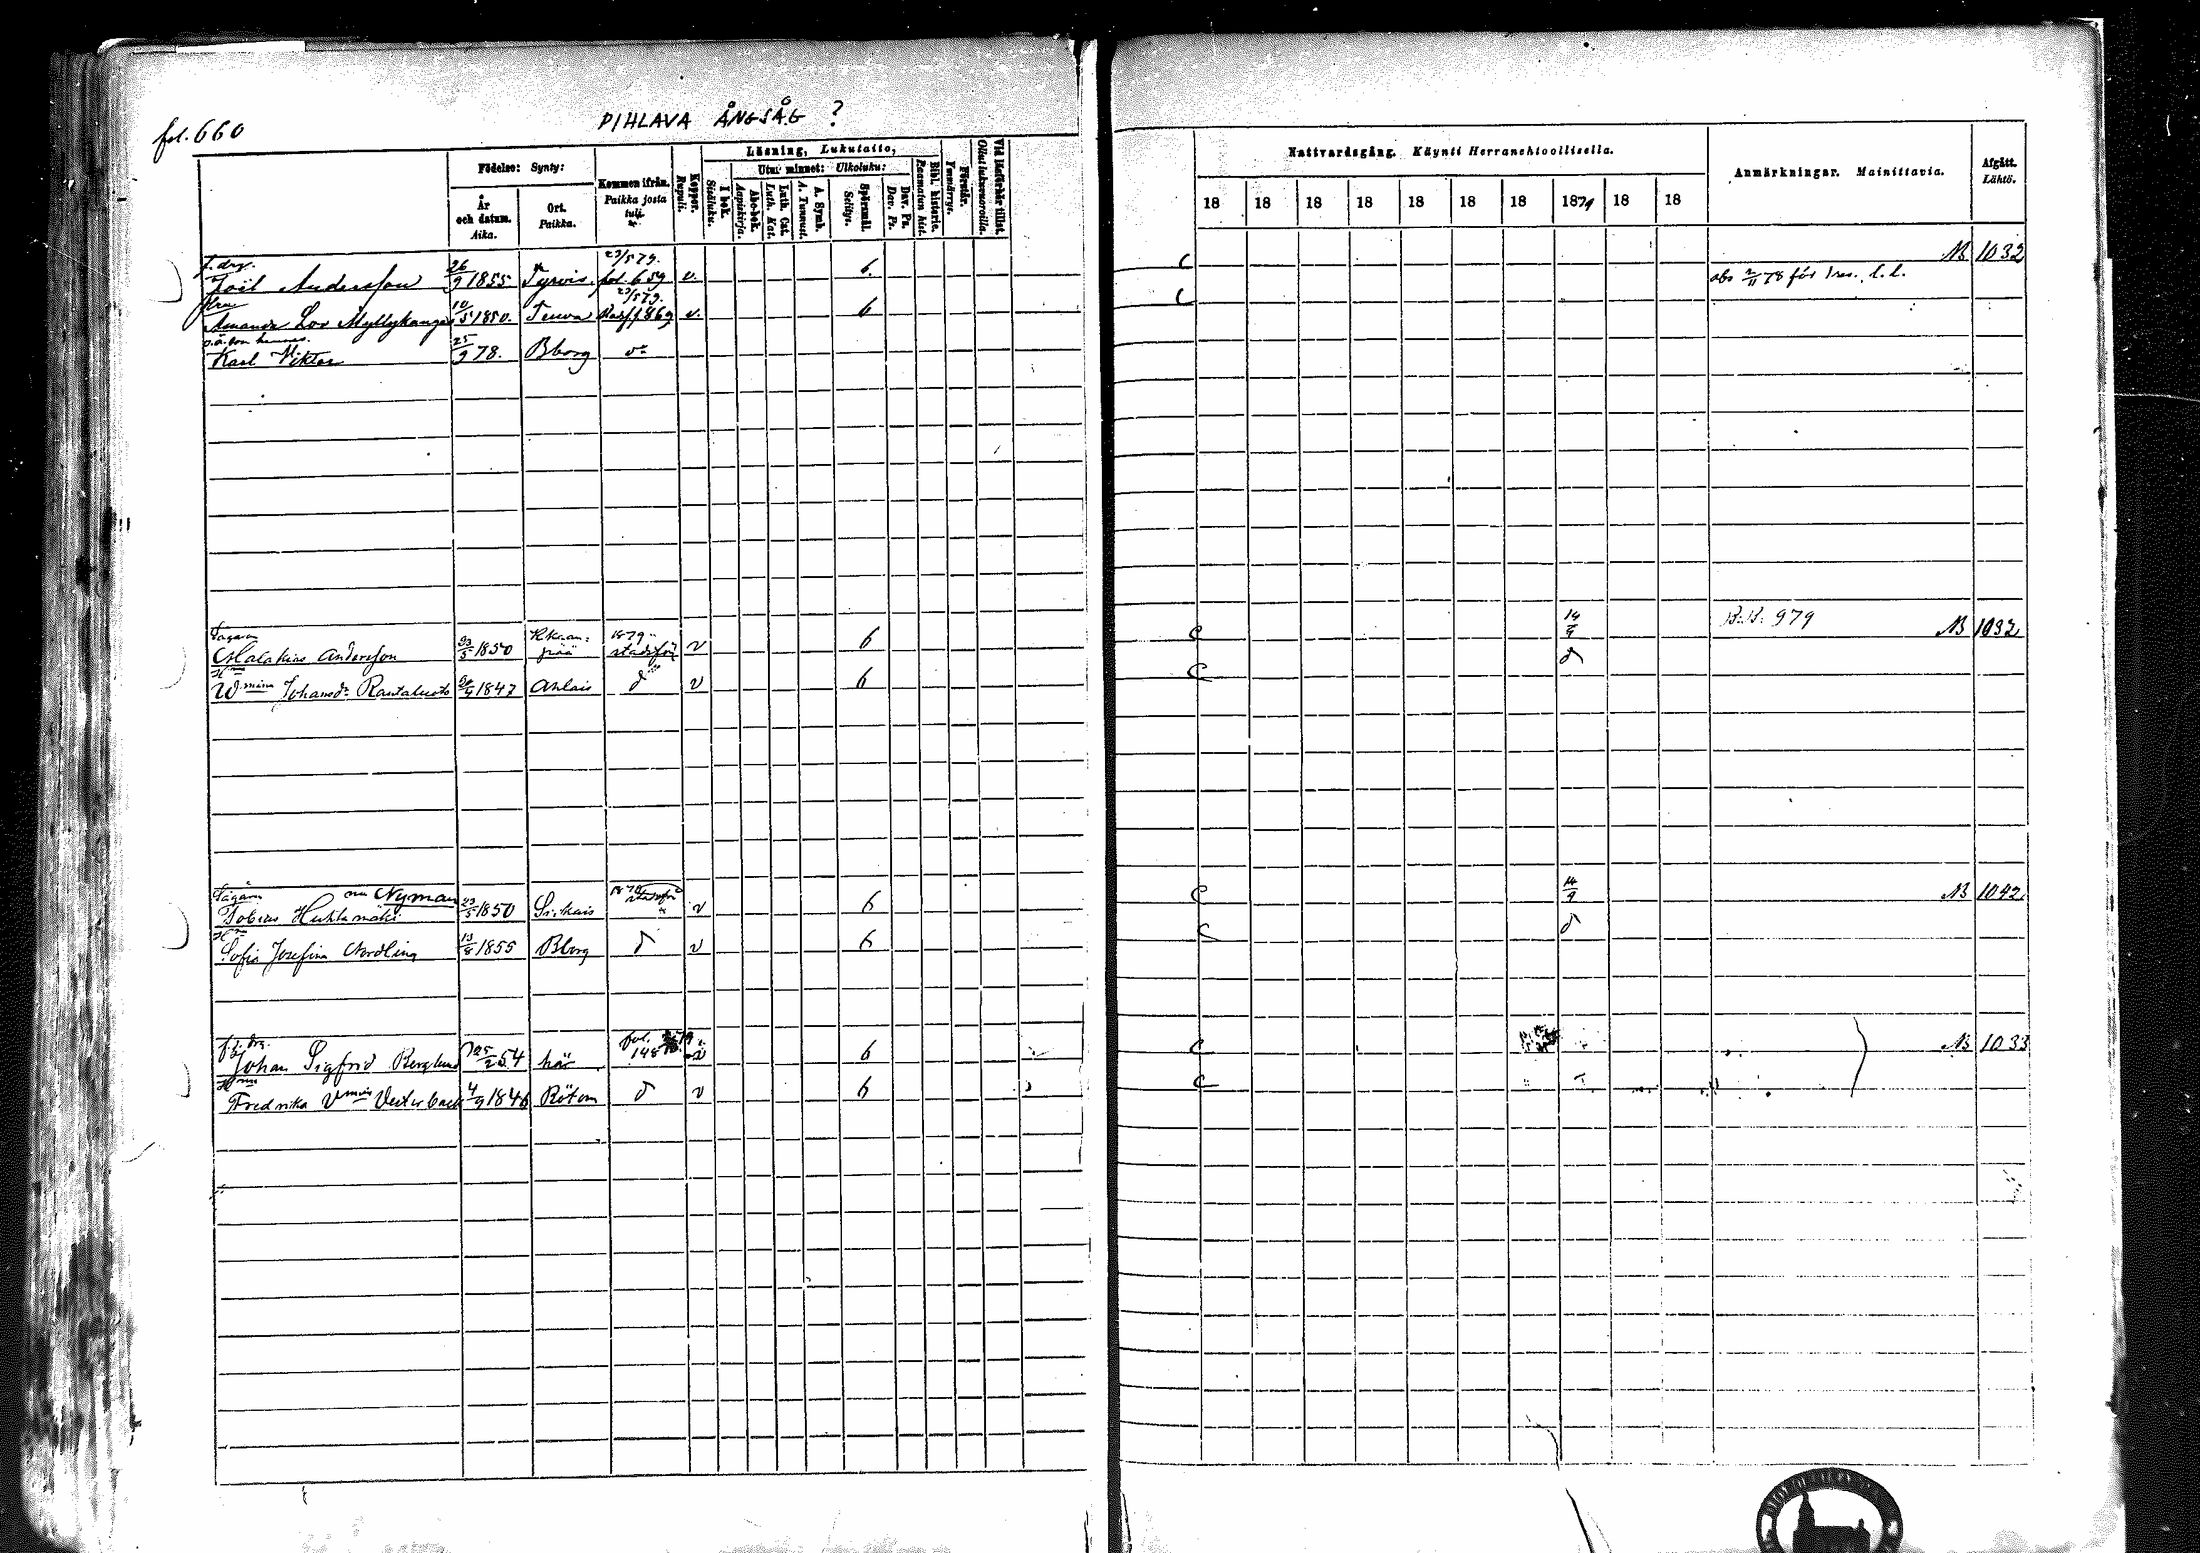 fol. 660
PIHLAVA ÅNGSÅG ?
Födelse: Synty:
År och datum. Aika.
Ort. Paikka.
Kommen ifrån. Paikka josta tuli.
Koppor. Rupuli.
Läsning, Lukutaito,
I bok. Sisäluku.
Utur minnet: Ulkoluku:
Abc-bok. Aapiskirja.
Luth. Cat. Luth. Kat.
A. Symb. A. Tunnust.
Spörsmål. Selitys.
Dav. Ps. Dav. Ps.
Bibl. historie. Raamatun hist.
Förstår. Ymmärrys.
Vid läsförhör tillst. Ollut lukuvuoroilla.
Nattvardsgång. Käynti Herranehtoollisella.
18 18 18 18 18 18 18 1879 18 18
Anmärkningar. Mainittavia.
Afgått. Lähtö.
f. drg. 23/5 79.
Joël Andersson 26/9 1855 Tyrvis fol. 659 v. 6 C NB 1032
obs 2/11 78 för l.l.
Hru 23/5 79.
Amanda Lov. Myllykangas 10/5 1850. Teuva 869 v. 6 C
Karl Viktor 25/9 78. Bborg do
Sågaren
Malakias Andersson 23/5 1850 1879 v 6 C 14/9 B.B. 979 NB 1032
Hn
Wmina Johansdr Rantaluoto 1847 Ahlais d v 6 C d
Sågaren nu Nyman
Tobias Huhtamäki 23/5 1850 v 6 C 14/9 NB 1042
Hn
Sofia Josefina Nordling 13/8 1855 Bborg d v 6 C d
fol.
Johan Sigfrid Berglund 25/2 54 här 148 v 6 C NB 1033
Hru
Fredrika Vmina Vesterback 4/9 1846 d v 6 C